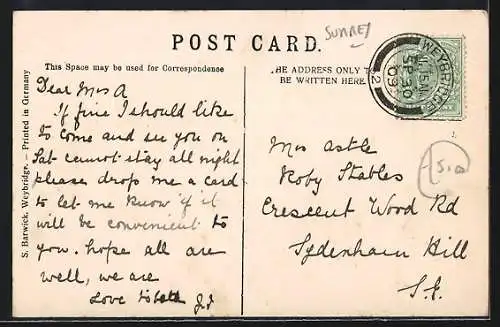 SURREY
POST CARD.
This Space may be used for Correspondence
THE ADDRESS ONLY TO
BE WRITTEN HERE
WEYBRIDGE
SP 30
09
S. Barwick, Weybridge. – Printed in Germany
Dear Mrs A
If fine I should like
to come and see you on
Sat cannot stay all night
please drop me a card
to let me know if it
will be convenient to
you. hope all are
well, we are
Love to all
Mrs Astle
Roby Stables
Crescent Wood Rd
Sydenham Hill
S.E.